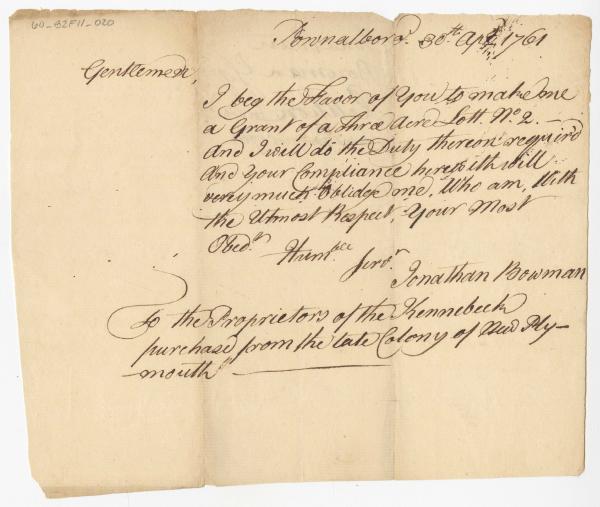 60-82F11-020
Pownalboro'. 30th Apl 1761
Gentlemen,
I beg the Favor of You to make me
a Grant of a three Acre Lott No. 2. —
And I will do the Duty thereon requir'd
And Your Compliance herewith will
very much Oblidge me, Who am, With
the Utmost Respect, Your Most
Obedt. Humble Servt.
Jonathan Bowman
To the Proprietors of the Kennebeck
purchase from the late Colony of New Ply-
mouth